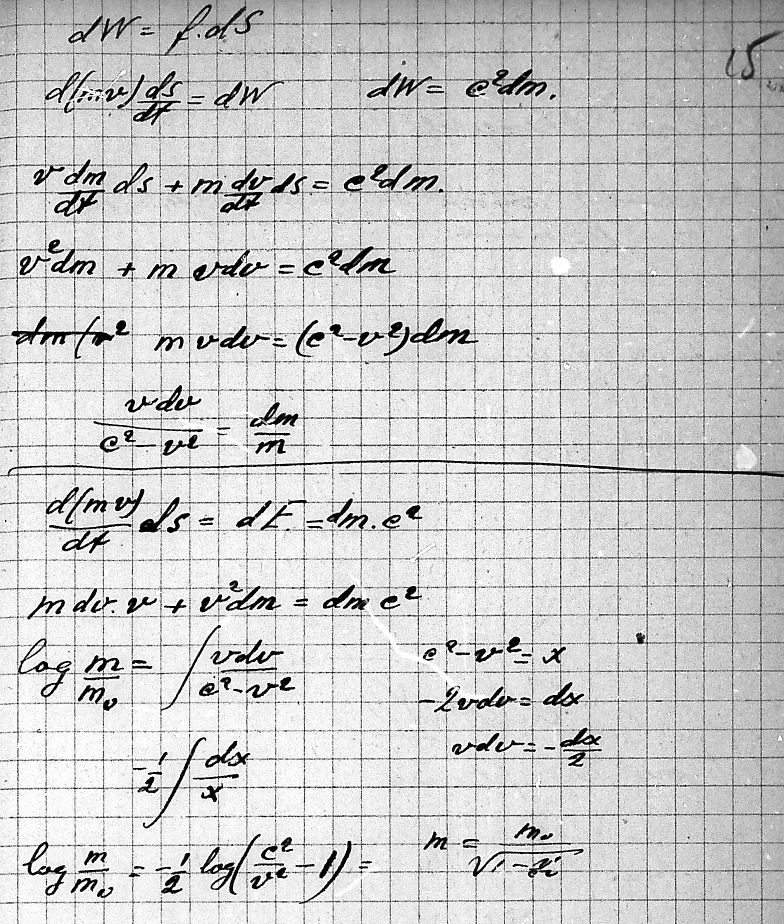 dW = f.ds
15
d(mv) ds/dt = dW    dW = c²dm.
v dm/dt ds + m dv/dt ds = c²dm.
v²dm + m vdv = c²dm
dm (v² m vdv = (c²-v²)dm
vdv/(c²-v²) = dm/m
d(mv)/dt ds = dE = dm.c²
m dv.v + v²dm = dm c²
log m/m₀ = ∫ vdv/(c²-v²)    c²-v² = x
-2vdv = dx
-1/2 ∫ dx/x    vdv = -dx/2
log m/m₀ = -1/2 log(c²/v² - 1) =    m = m₀/√(1-